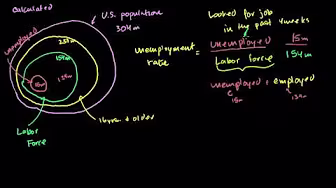 Calculated
U.S. population
304m
unemployed
235m
154m
15m
Labor
Force
16 yrs. + older
Looked for job
in the past 4 weeks
unemployment
rate
=
unemployed
Labor force
15m
154m
unemployed + employed
15m